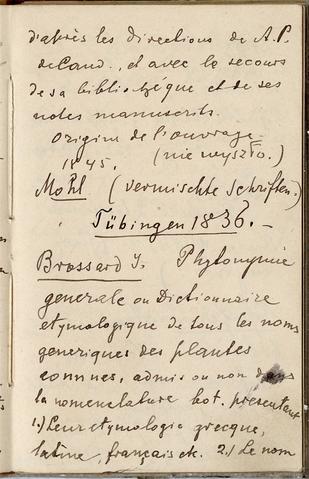 d'après les directions de A.P.
deCand., et avec le secours
de sa bibliothéque et de ses
notes manuscrits.
Origine de l'ouvrage
1845. (nie wyszło.)
Mohl (vermischte Schriften.)
Tübingen 1836. —
Brossard J. Phytonymie
generale ou Dictionnaire
etymologique de tous les noms
generiques des plantes
connues, admis ou non dans
la nomenclature bot. presentant
1.) Leur etymologie grecque,
latine, français etc. 2.) Le nom